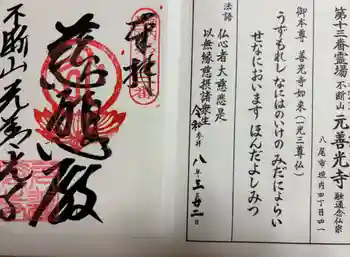 第十三番霊場
不断山 元善光寺 融通念仏宗
八尾市垣内四丁目四一
御本尊 善光寺如来(一光三尊仏)
うずもれし なにはのいけの みだにょらい
せなにおいます ほんだよしみつ
法語
仏心者大慈悲是
以無縁慈摂諸衆生
令和 八年 三 廿二日
奉拝
不断山元善光寺